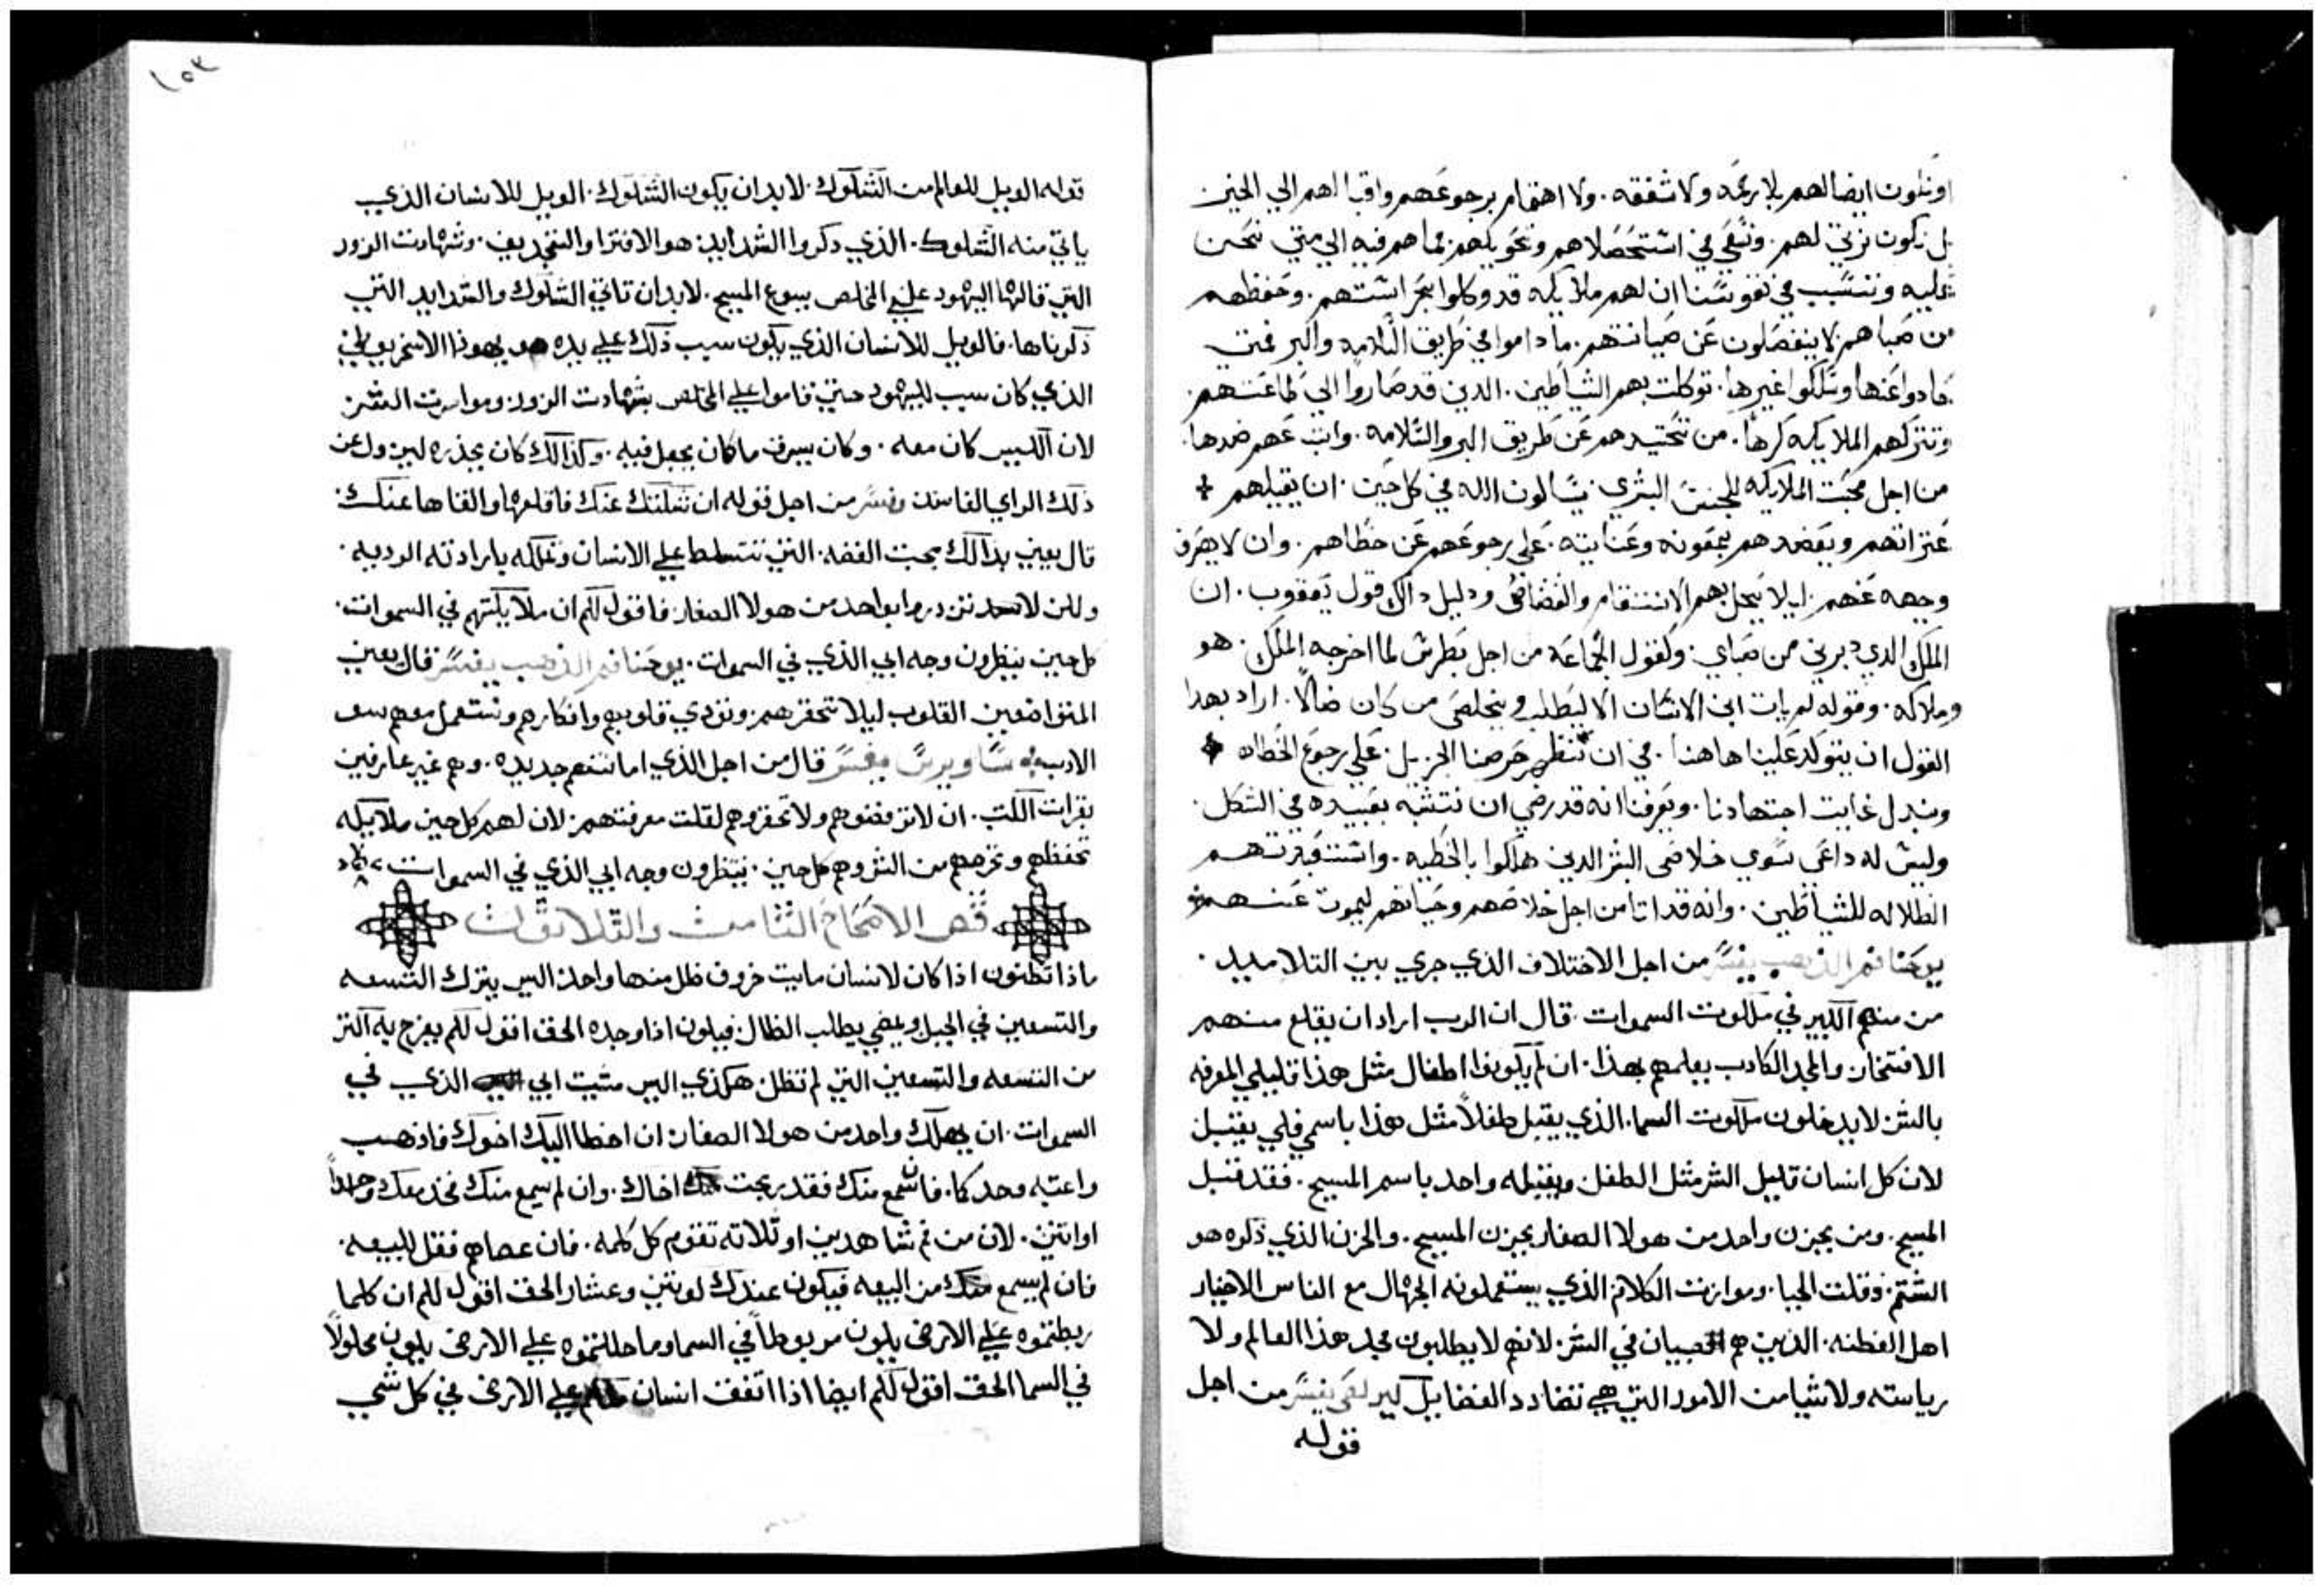 اونكون ايضا لهم بلا رحمه ولا شفقه. ولا اهتمام برجوعهم واقبالهم الي الخير
بل نكون نرتي لهم. ونسعي في استحضالاهم ونحويلهم مما هم فيه الي متي نحن
عليه ونتسبب في نفوسنا ان لهم ملايكه قد وكلوا بحراستهم. وحفظهم
من صباهم لا ينفصلون عن صيانتهم. ما داموا في طريق السلامه والبر فمتي
حادوا عنها وسلكوا غيرها. توكلت بهم الشياطين. الدين قد صاروا الي طاعتهم.
وتتركهم الملايكه كرها. من تحييدهم عن طريق البر والسلامه. واتباعهم ضدها.
من اجل محبت الملايكه للجنس البشري. يسالون الله في كل حين. ان يقيلهم
عتراتهم ويعضدهم بمعونه وعنايته. علي رجوعهم عن خطاهم. وان لا يصرف
وجهه عنهم. ليلا يحل بهم الانتقام والقضا في ودليل دالك قول يعقوب. ان
الملك الدي دبرني من صباي. وكقول الجماعه من اجل بطرس لما اخرجه الملك. هو
وملاكه. وقوله لم يات ابن الانسان الا ليطلب ويخلص من كان ضالاً. اراد بهدا
القول ان يتوكد علينا هاهنا. في ان تنظر حرصنا الجزيل. علي رجوع الخطاه
ونبدل غايت اجتهادنا. ويعرفنا انه قد رضي ان نتشبه بعبيده في الشكل.
وليس له داعي سوي خلاص البشر الدين هلكوا بالخطيه. واستنقدتهم
الطلاله للشياطين. وانه قد اتا من اجل خلاصهم وحياتهم ليموت عنهم
يوحنا فم الذهب يفسر من اجل الاختلاف الذي جري بين التلاميد.
من منهم الكبير في ملكوت السموات. قال ان الرب اراد ان يقلع منهم
الافتخار والمجد الكادب يعلمهم بهذا. ان لم يكونوا اطفال مثل هذا قليلي المعرفه
بالشر لا يدخلون ملكوت السما. الذي يقبل طفلاً مثل هذا باسمي فلي يقبل
لان كل انسان قليل الشر مثل الطفل ويقبله واحد باسم المسيح. فقد قبل
المسيح. ومن يحزن واحد من هولا الصغار يحزن المسيح. والحزن الذي ذكره هو
الشتم. وقلت الحيا. وموازنت الكلام الذي يستعملونه الجهال مع الناس الاخيار
اهل الفطنه. الذين هم صبيان في الشر. لانهم لا يطلبون مجد هذا العالم ولا
رياسته ولا شيا من الامور التي هي تضادد الفضايل كيرلص يفسر من اجل
قوله
١٥٣
قوله الويل للعالم من الشكوك. لابد ان يكون الشكوك. الويل للانسان الذي
ياتي منه الشكوك. الذي دكروا الشدايد هو الافترا والتجديف. وشهادت الزور
التي قالها اليهود علي المخلص يسوع المسيح. لابد ان تاتي الشكوك والشدايد التي
ذكرناها. فالويل للانسان الذي يكون سبب ذلك علي يده هو يهودا الاسخريوطي
الذي كان سبب لليهود حتي قاموا علي المخلص بشهادت الزور. وموامرت الشر
لان الكيس كان معه. وكان يسرق ما كان يجعل فيه. وكذالك كان يحذره ليزول عن
ذلك الراي الفاسد ونفسر من اجل قوله ان شككتك عنك فاقلعها والقاها عنك.
قال يعني بذالك محبت الفضه. التي تتسلط علي الانسان وتملكه بارادته الرديه.
ولكن لا تزدروا بواحد من هولا الصغار. فاقول لكم ان ملايكتهم في السموات.
كل حين ينظرون وجه ابي الذي في السموات. يوحنا فم الذهب يفسر قال يعني
المتواضعين القلوب ليلا تتحقرهم. ونوذي قلوبهم وافكارهم ونستعمل معهم سو
الادب ساويرس يفسر قال من اجل الذي اما نتهم جديده. وهم غير عارفين
بقرات الكتب. ان لا ترفضوهم ولا تحقروهم لقلت معرفتهم. لان لهم كل حين ملايكه
تحفظهم وتحرسهم من الشر وهم كل حين. ينظرون وجه ابي الذي في السموات
فص الاصحاح الثامن والثلاثون
ماذا تظنون اذا كان لانسان مايت خروف ظل منها واحد. اليس يترك التسعه
والتسعين في الجبل ويمضي يطلب الظال. فيكون اذا وجده الحق اقول لكم يفرح به اكتر
من التسعه والتسعين التي لم تظل. هكذي ليس مشيت ابي الذي في
السموات. ان يهلك واحد من هولا الصغار. ان اخطا اليك اخوك فاذهب
واعتبه وحدكما. فان سمع منك فقد ربحت اخاك. وان لم يسمع منك فخد معك واحداً
او اتنين. لان من فم شاهدين او ثلاثه تقوم كل كلمه. فان عصاهم فقل للبيعه.
فان لم يسمع من البيعه فيكون عندك كوتني وعشار الحق اقول لكم ان كلما
ربطتموه علي الارض يكون مربوطاً في السما وما حللتموه علي الارض يكون محلولاً
في السما الحق اقول لكم ايضا اذا اتفق انسان علي الارض في كل شي